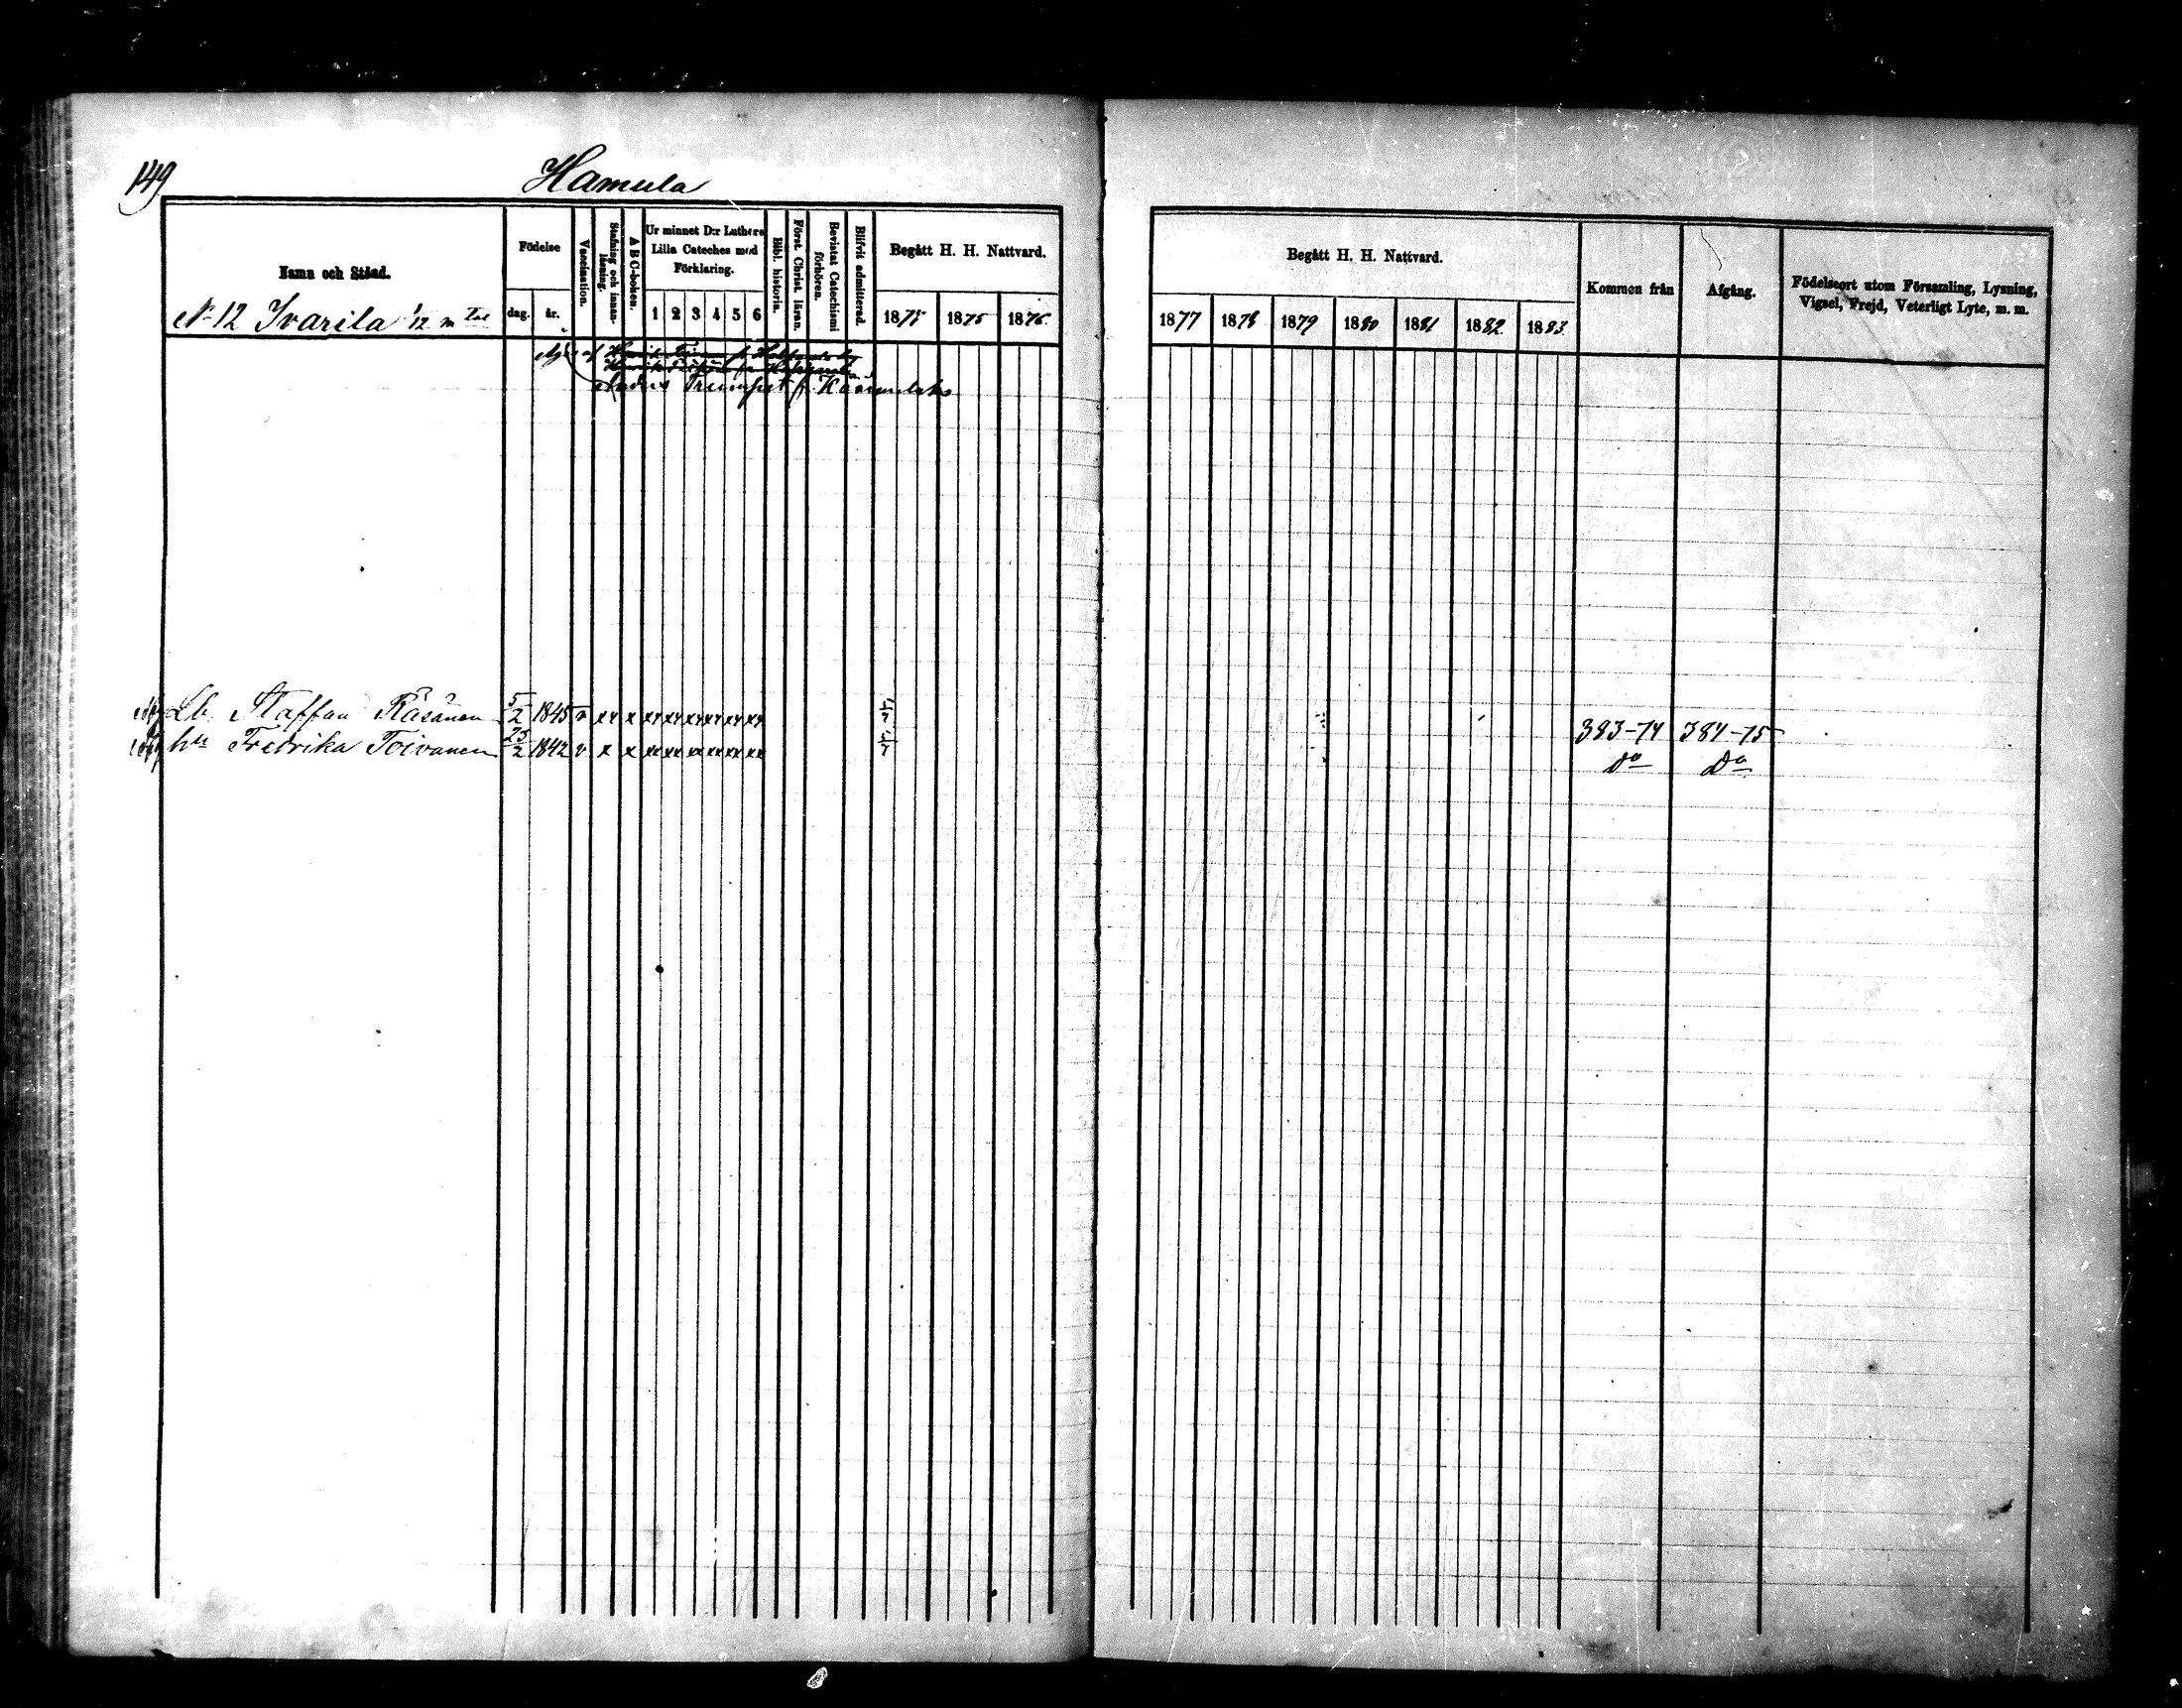 149
Hamula
Namn och Stånd.
Födelse
dag. år.
Vaccination.
Stafning och innan-
läsning.
A B C-boken.
Ur minnet D:r Luthers
Lilla Cateches med
Förklaring.
1 2 3 4 5 6
Bibl. historia.
Först. Christ. läran.
Bevistat Catechismi
förhören.
Blifvit admitterad.
Begått H. H. Nattvard.
1874 1875 1876
Begått H. H. Nattvard.
1877 1878 1879 1880 1881 1882 1883
Kommen från
Afgång.
Födelseort utom Församling, Lysning,
Vigsel, Frejd, Veterligt Lyte, m. m.
N 12 Ivarila 1/12 m
Trumpet fr
Lb. Staffan Räsänen 5/2 1845 v xx x xx xx xx xx xx xx 383-74 384-75
hu Fredrika Toivanen 25/2 1842 v x x xx xx xx xx xx xx Do Do